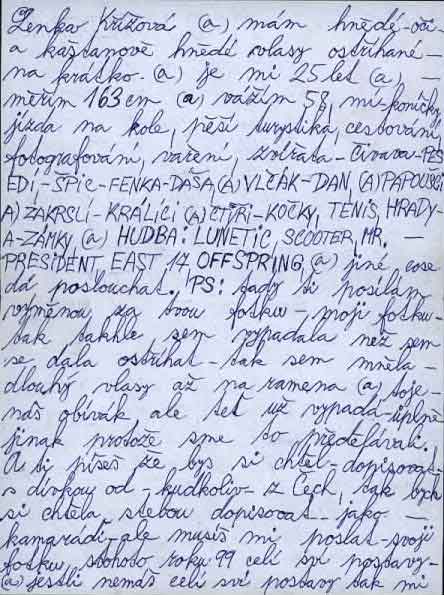 Lenka Křížová (a) mám hnědé-oči-
a kaštanově hnědé vlasy ostříhané-
na krátko. (a) je mi 25 let (a), -
měřím 163 cm (a) vážím 58, mí-koníčky
jízda na kole, pěší turystika, cestování
fotografování, vaření, zvířata-čivava-PES
EDÍ,-ŠPIC-FENKA-DAŠA,(A) VLČÁK-DAN, (A) PAPOUŠCI
A) ZAKRSLÍ-KRÁLÍCI (A) ČTÝŘI-KOČKY, TENIS, HRADY-
A-ZÁMKY, (a) HUDBA: LUNETIC, SCOOTER, MR. -
PRESIDENT, EAST 17, OFFSPRING, (a) jiné cose
dá poslouchat. PS: tady ti posílám
výměnou za tvou fotku-moji fotku-
tak takhle sem vypadala než sem
se dala ostříhat-tak sem měla-
dlouhý vlasy až na ramena (a) toje-
náš obívák ale teť už vypadá-úplně
jinak protože sme to předělávali.
A ti píšeš že bys si chtěl-dopisovat-
s dívkou od-kudkoliv-z Čech, tak bych
si chtěla stebou dopisovat-jako-
kamarádi-ale musíš mi poslat-svoji
fotku, stohoto roku 99 celí sví postavy-
(a) jestli nemáš celí sví postavy tak mi